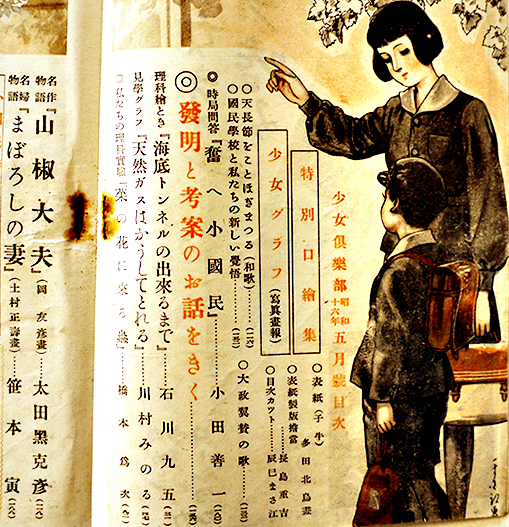 少女倶樂部 昭和十六年 五月號目次
特別口繪集
○表紙(子牛)……多田北烏畫
○表紙製版擔當……長島重吉
○目次カツト……辰巳まさ江
少女グラフ(寫眞畫報)
○天長節をことほぎまつる(和歌)
○國民學校と私たちの新しい覺悟
○大政翼賛の歌
◎時局問答『奮へ小國民』……小田善一
◎發明と考案のお話をきく
理科繪とき『海底トンネルの出來るまで』……石川九五
見學グラフ『天然ガスはかうしてとれる』……川村みのる
◎私たちの理科實驗『菜の花に來る蟲』……橋本爲次
名作物語『山椒大夫』……太田黑克彦
名婦物語『まぼろしの妻』(土村正壽畫)……笹本寅